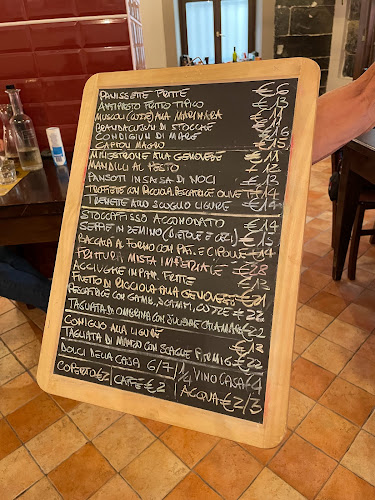 PANISSETTE FRITTE €6
ANTIPASTO FRITTO TIPICO €13
MUSCOLI (COZZE) ALLA MARINARA €11
BRANDACUJUN DI STOCCHE €14
CONDIGIUN DI MARE €16
CAPPON MAGRO €15
MINESTRONE ALLA GENOVESE €11
MANDILLI AL PESTO €12
PANSOTI IN SALSA DI NOCI €12
TROFIETTE CON RICCIOLA, PESCATRICE OLIVE €14
TRENETTE ALLO SCOGLIO LIGURE €14
STOCCAFISSO ACCOMODATO €14
SEPPIE IN ZEMINO (BIETOLE E CECI) €13
BACCALÀ AL FORNO CON PAT. E CIPOLLE €14
FRITTURA MISTA IMPERIALE €28
ACCIUGHE IN PAN. FRITTE €13
FILETTO DI RICCIOLA ALLA GENOVESE €21
PESCATRICE CON GAMB., SCAMPI, COZZE €22
TAGLIATA DI OMBRINA CON JULIENNE CALAMARI €22
CONIGLIO ALLA LIGURE €13
TAGLIATA DI MANZO CON SCAGLIE FORMAG. €22
DOLCI DELLA CASA 6/7/
VINO CASA
COPERTO €2
CAFFÈ €2
ACQUA €2/3